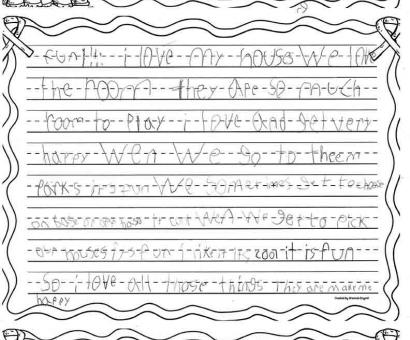 fun!!! i love my houses We love
the room they are so much
room to play i love and get very
happy Wen We go to theem
parks it is fun We sometimes get to choose
on base or
When We get to pick
our houses it is fun i like it its cool it is fun
So i love all those things This are make me
happy